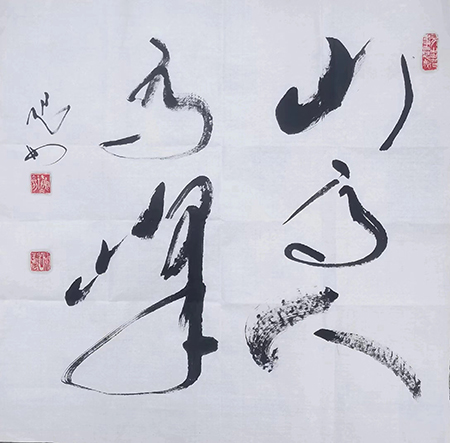 山高人
为峰